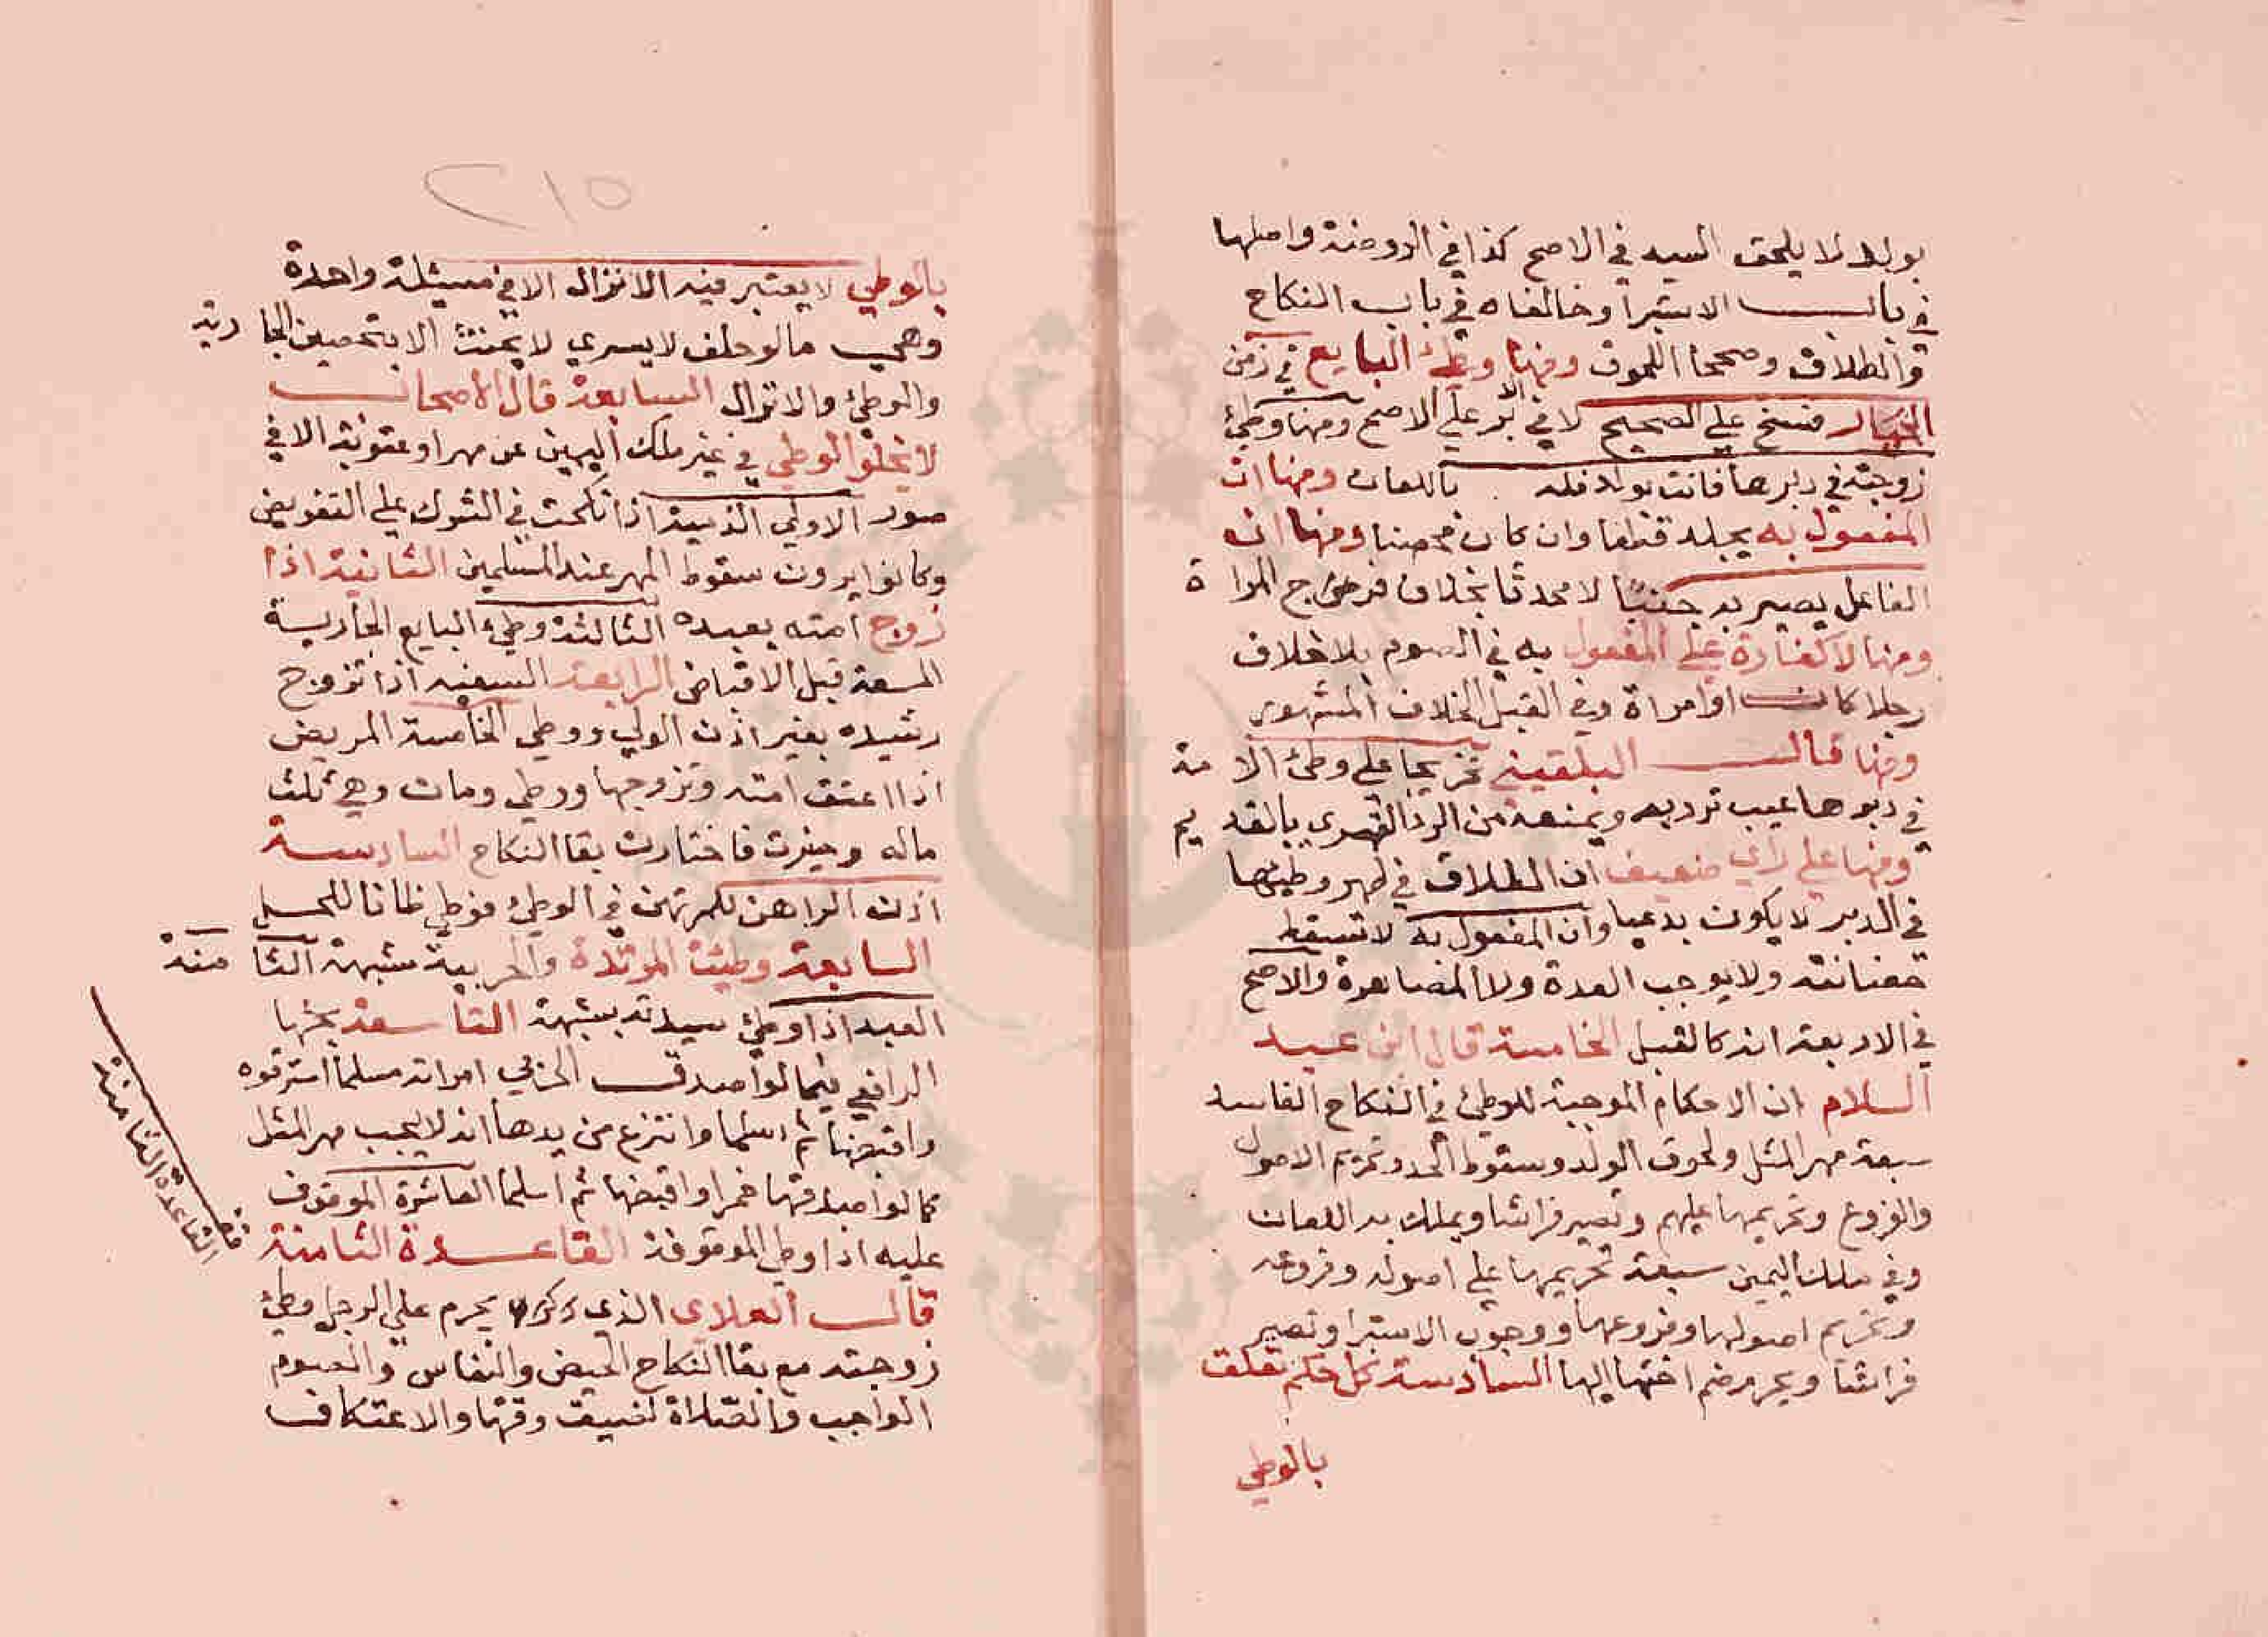 بولد لا يلحق السيد في الاصح كذا في الروضة واصلها
في باب الاستبرا وخالفاه في باب النكاح
والطلاق وصححا اللحوق ومنها وطئ البايع في زمن
الخيار فسخ على الصحيح لا في الدبر على الاصح ومنها وطئ
زوجته في دبرها فاتت بولد فله باللعان ومنها ان
المفعول به يجلد مطلقا وان كان محصنا ومنها ان
الفاعل يصير به جنبا لا محدثا بخلاف فرج المراة
ومنها لا كفارة على المفعول به في الصوم بلا خلاف
رجلا كان او امراة وفي القبل الخلاف المشهور
ومنها قال البلقيني تخريجا على وطئ الامة
في دبرها عيب ترد به ويمنعه من الرد القهري بالقديم
ومنها على راي ضعيف ان الطلاق في طهر وطيها
في الدبر لا يكون بدعيا وان المفعول به لا تسقط
حضانته ولا يوجب العدة ولا المصاهرة والاصح
في الاربعة انه كالقبل الخامسة قال ابن عبد
السلام ان الاحكام الموجبة للوطئ في النكاح الفاسد
سبعة مهر المثل ولحوق الولد وسقوط الحد وتحريم الاصول
والفروع وتحريمها عليهم وتصير فراشا ويملك به اللعان
وفي ملك اليمين سبعة تحريمها على اصوله وفروعه
وتحريم اصولها وفروعها ووجوب الاستبرا وتصير
فراشا ويحرم ضم اختها اليها السادسة كل حكم تعلق
بالوطي
٢١٥
بالوطي لا يعتبر فيه الانزال الا في مسئلة واحدة
وهي ما لو حلف لا يسري لا يحنث الا بتحصين الجارية
والوطئ والانزال السابعة قال الاصحاب
لا يخلو الوطي في غير ملك اليمين عن مهر او عقوبة الا في
صور الاولي الذمية اذا نكحت في الشرك على التفويض
وكانوا يرون سقوط المهر عند المسلمين الثانية اذا
زوج امته بعبده الثالثة وطئ البايع الجارية
المبيعة قبل الاقباض الرابعة السفيه اذا تزوج
رشيده بغير اذن الولي ووطي الخامسة المريض
اذا اعتق امته وتزوجها ووطي ومات وهي ثلث
ماله وخيرت فاختارت بقا النكاح السادسة
اذن الراهن للمرتهن في الوطئ فوطي ظانا للحل
السابعة وطئت المرتدة والحربية شبهة الثامنة
العبد اذا وطئ سيدته بشبهة التاسعة بحثها
الرافعي فيما لو اصدق الحربي امراته مسلما استرقوه
واقبضها ثم اسلما وانتزع من يدها انه لا يجب مهر المثل
كما لو اصدقها خمرا واقبضها ثم اسلما العاشرة الموقوف
عليه اذا وطي الموقوفة القاعدة الثامنة
قال العلاي الذي ذكره يحرم على الرجل وطئ
زوجته مع بقا النكاح الحيض والنفاس والصوم
الواجب والصلاة لضيق وقتها والاعتكاف
القاعدة الثامنة